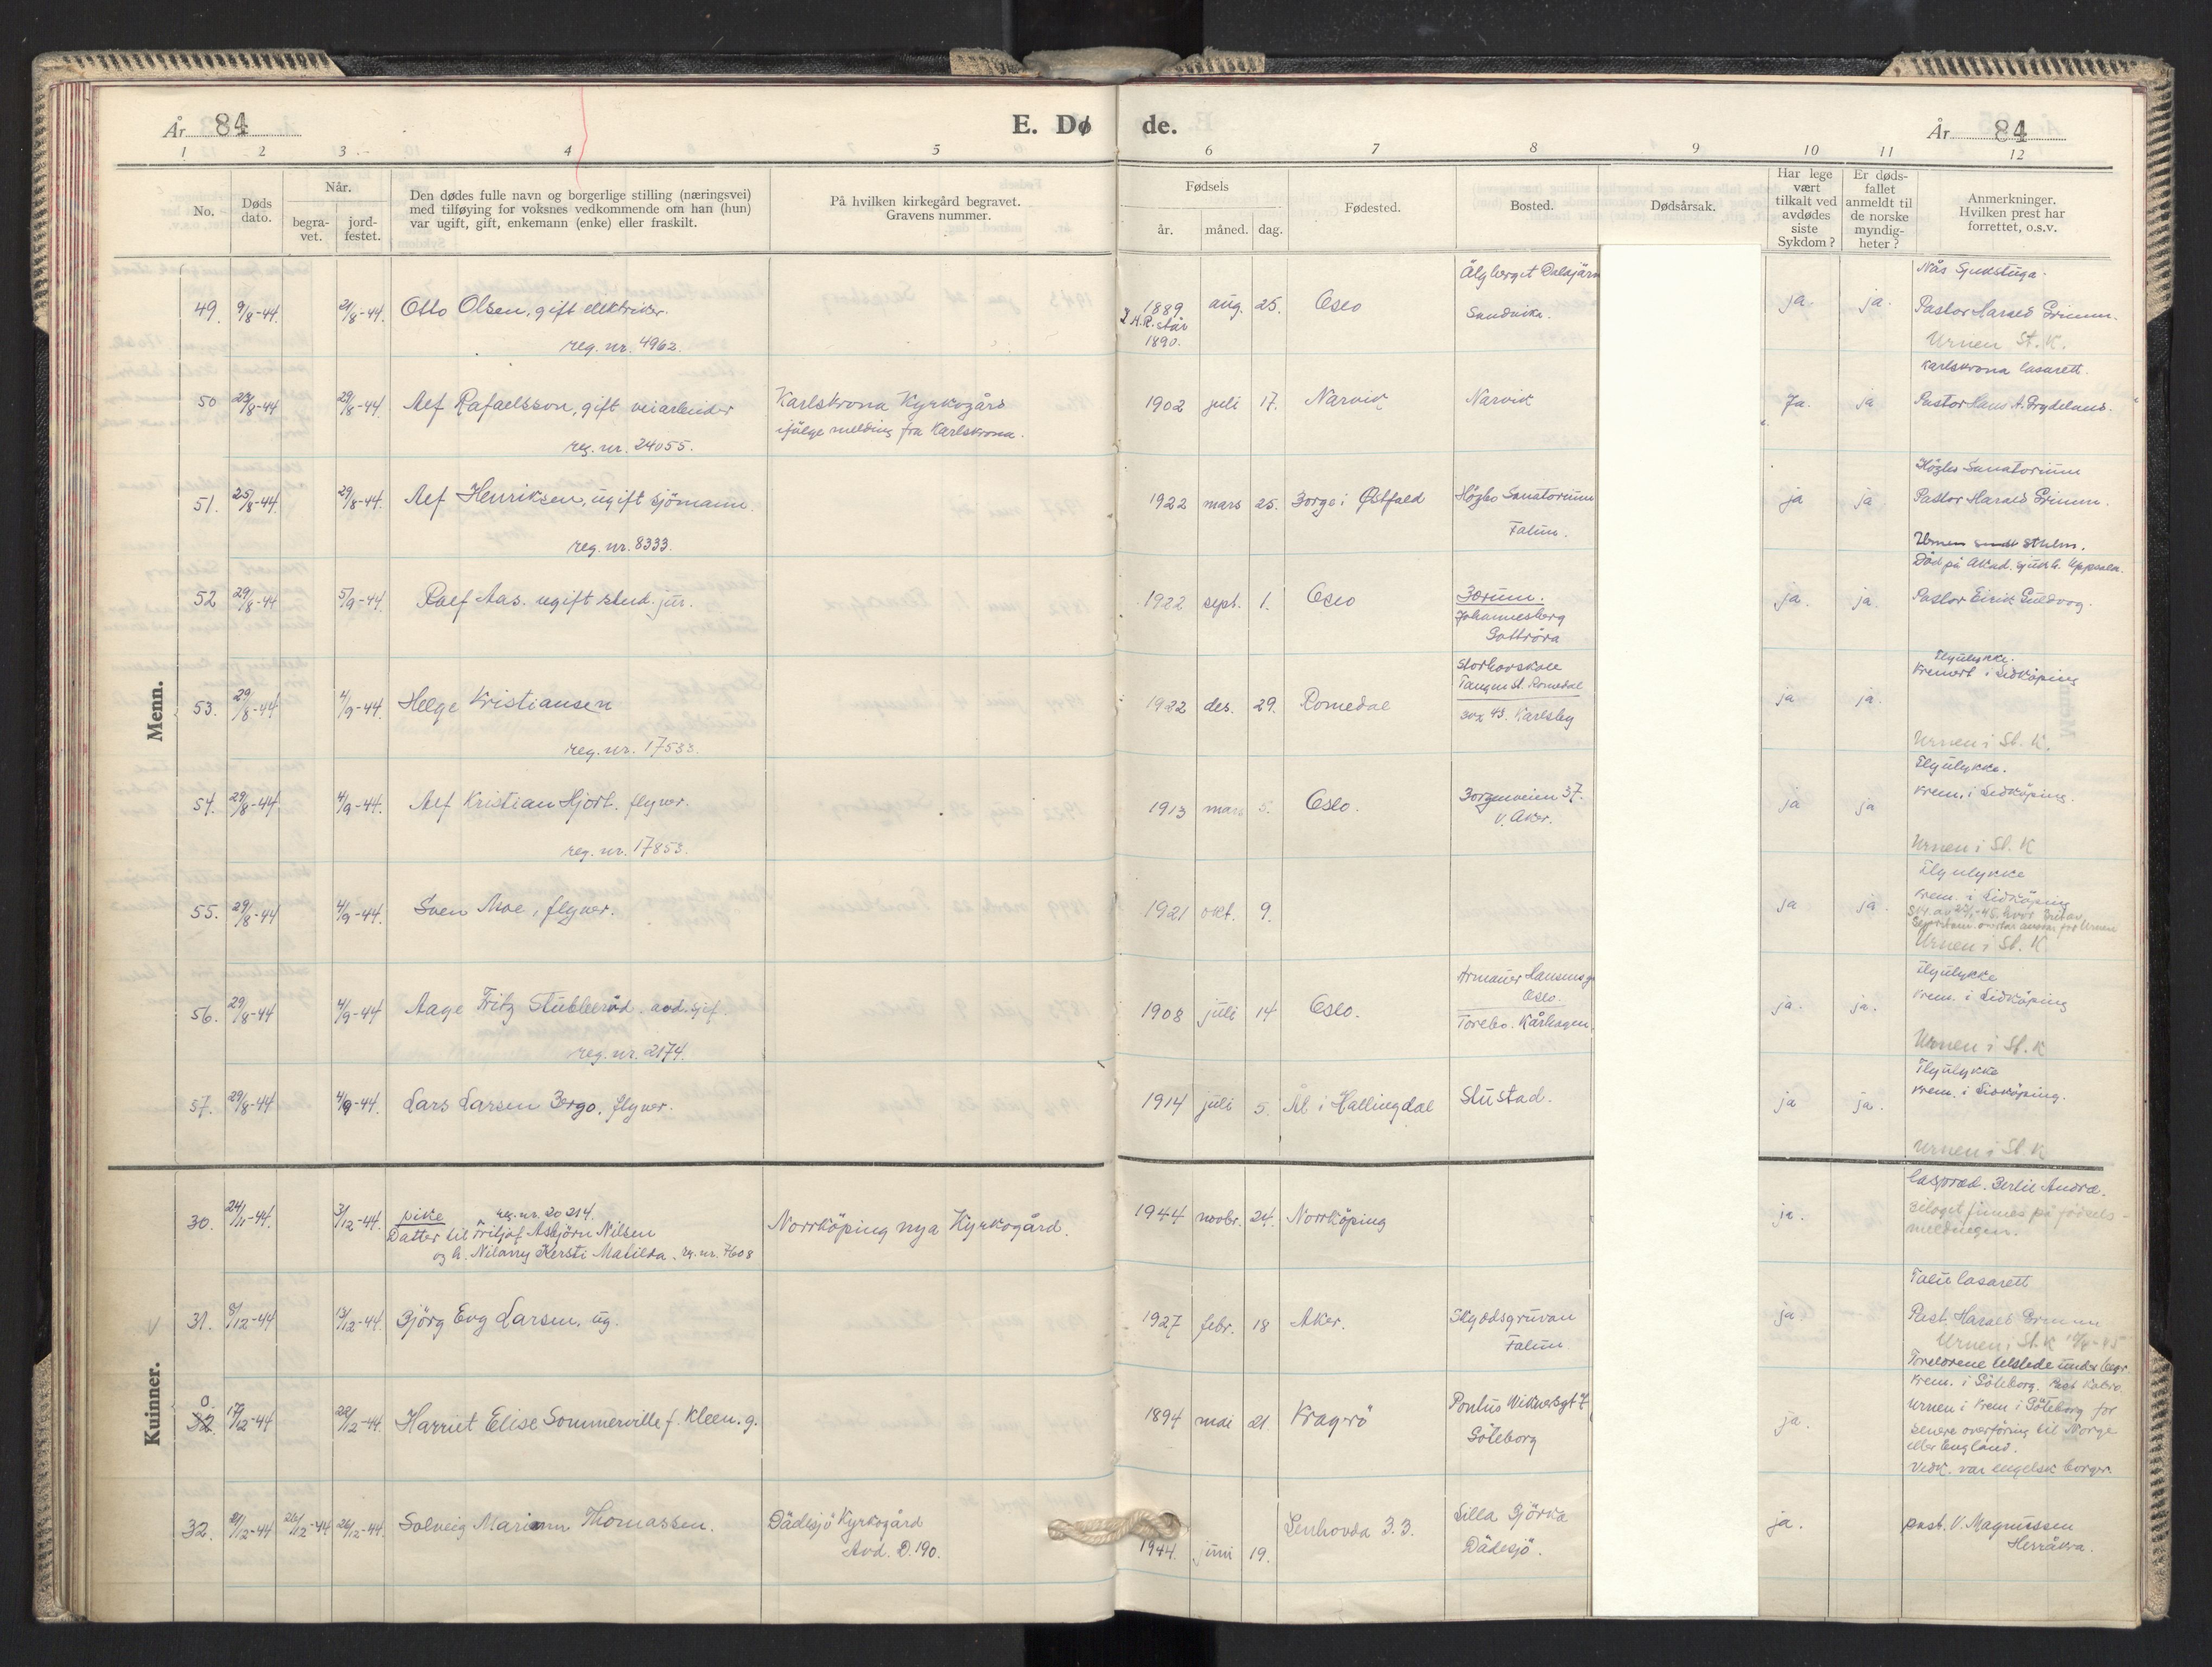 År 84
E. Dø de.
År 84
1 2 3 4 5 6 7 8 9 10 11 12
No.
Døds dato.
Når.
begravet.
jordfestet.
Den dødes fulle navn og borgerlige stilling (næringsvei)
med tilføying for voksnes vedkommende om han (hun)
var ugift, gift, enkemann (enke) eller fraskilt.
På hvilken kirkegård begravet.
Gravens nummer.
Fødsels
år. måned. dag.
Fødested.
Bosted.
Dødsårsak.
Har lege
vært
tilkalt ved
avdødes
siste
Sykdom?
Er døds-
fallet
anmeldt til
de norske
myndig-
heter?
Anmerkninger.
Hvilken prest har
forrettet, o.s.v.
Menn.
49. 9/8-44. 21/8-44. Otto Olsen, gift elektriker.
reg. nr. 4962.
1889 aug. 25. Oslo
I H.R. står
1890.
Älgberget Dalajärn
Sandvika.
ja. ja.
Nås Sjukstuga.
Pastor Harald Grimm.
Urnen St. K.
50 23/8-44 29/8-44. Alf Rafaelsson, gift veiarbeider
reg. nr. 24055.
Karlskrona Kyrkogård
ifølge melding fra Karlskrona.
1902 juli 17. Narvik Narvik
Ja. ja
Karlskrona lasarett.
Pastor Hans A. Grydeland.
51. 25/8-44 29/8-44. Alf Henriksen, ugift sjömann.
reg. nr. 8333.
1922 mars 25. Borge i Østfold
Högbo Sanatorium
Falun.
ja ja
Högbo Sanatorium
Pastor Harald Grimm.
Urnen sendt Sthlm.
52 29/8-44 5/9-44. Rolf Aas. ugift stud. jur.
1922 sept. 1. Oslo
Bærum.
Johannesberg
Gottröra
ja. ja.
Död på Akad. sjukh. Uppsala.
Pastor Eirik Guldvog.
53. 29/8-44 4/9-44. Helge Kristiansen
reg. nr. 17533.
1922 des. 29. Romedal
Storhovskole
Tangen st. Romedal
30x 43. Karlsby
ja ja.
Flyulykke.
Kremert i Lidköping
Urnen i St. K.
54. 29/8-44 4/9-44. Alf Kristian Hjort. flyver.
reg. nr. 17853.
1913 mars 5. Oslo.
Borgenveien 37.
V. Aker.
ja ja
Flyulykke.
Krem. i Lidköping.
Urnen i St. K
55. 29/8-44 4/9-44. Sven Moe, flyver.
1921 okt. 9.
ja ja.
Flyulykke
Krem. i Lidköping
Urnen i St. K
56. 29/8-44 4/9-44 Aage Fritz Stubberød. avd. sjef.
reg. nr. 2174.
1908 juli 14 Oslo.
Armauer Hansensg
Oslo.
Torebo. Kårhagen.
ja. ja.
Flyulykke
Krem. i Lidköping
Urnen i St. K
57. 29/8-44 4/9-44. Lars Larsen Bergo. flyver.
1914 juli 5. Ål i Hallingdal Slustad.
ja ja.
Flyulykke
Krem. i Lidköping.
Urnen i St. K
Kvinner.
30. 24/11-44. 3/12-44. pike reg. nr. 20214.
Datter til Fritjof Asbjörn Nilsen
og h. Nilanny Kersti Matilda. rg. nr. 7608
Norrköping nya Kyrkogård.
1944 novbr. 24. Norrköping
ja.
Bilaget finnes på fødsels-
meldingen.
31. 8/12-44 13/12-44. Björg Evy Larsen. ug.
1927 febr. 18 Aker.
Skyddsgruvan
Falun.
ja
Falu lasarett
Past. Harald Grimm
Urnen i St. K 10/4-45
0.
32. 17/12-44 22/12-44. Harriet Elise Sommerville f. Kleen. g.
1894 mai 21. Kragerö
Pontus Wiknersgt 7
Göteborg
ja.
Foreldrene tilstede under begr.
Krem. i Göteborg.
Urnen i Krem i Göteborg for
senere overföring til Norge
eller England.
Vedk. var engelsk borger.
32. 21/12-44 26/12-44 26/12-44. Solveig Mariann Thomassen.
Dädesjö Kyrkogård
Avd. D. 190.
1944. juni 19. Lenhovda B.B.
Lilla Björka
Dädesjö.
ja.
past. V. Magnussen
Herråkra.